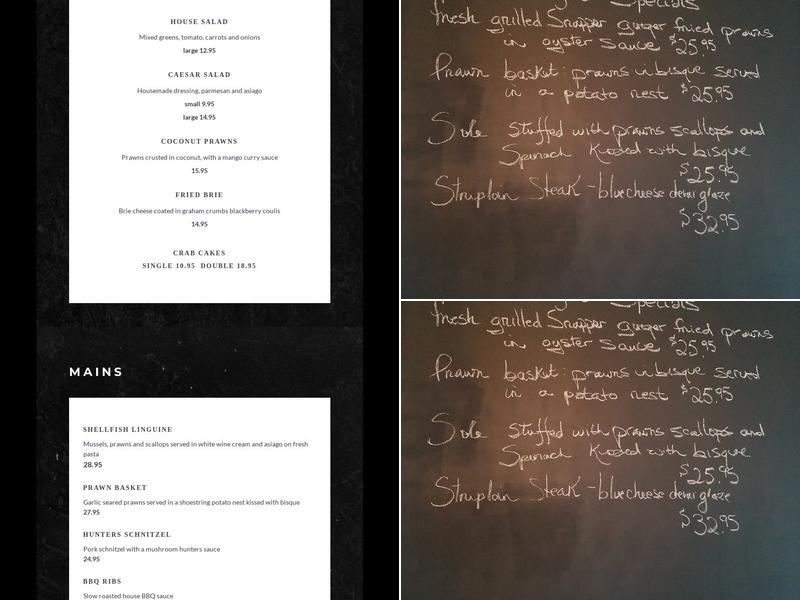 HOUSE SALAD
Mixed greens, tomato, carrots and onions
large 12.95
CAESAR SALAD
Housemade dressing, parmesan and asiago
small 9.95
large 14.95
COCONUT PRAWNS
Prawns crusted in coconut, with a mango curry sauce
15.95
FRIED BRIE
Brie cheese coated in graham crumbs blackberry coulis
14.95
CRAB CAKES
SINGLE 10.95 DOUBLE 18.95
MAINS
SHELLFISH LINGUINE
Mussels, prawns and scallops served in white wine cream and asiago on fresh
pasta
28.95
PRAWN BASKET
Garlic seared prawns served in a shoestring potato nest kissed with bisque
27.95
HUNTERS SCHNITZEL
Pork schnitzel with a mushroom hunters sauce
24.95
BBQ RIBS
Slow roasted house BBQ sauce
Specials
fresh grilled Snapper ginger fried prawns
in oyster sauce $25.95
Prawn basket: prawns in bisque served
in a potato nest $25.95
Sole stuffed with prawns scallops and
Spinach Kissed with bisque
$25.95
Striploin Steak - blue cheese demi glaze
$32.95
Specials
fresh grilled Snapper ginger fried prawns
in oyster sauce $25.95
Prawn basket: prawns in bisque served
in a potato nest $25.95
Sole stuffed with prawns scallops and
Spinach Kissed with bisque
$25.95
Striploin Steak - blue cheese demi glaze
$32.95